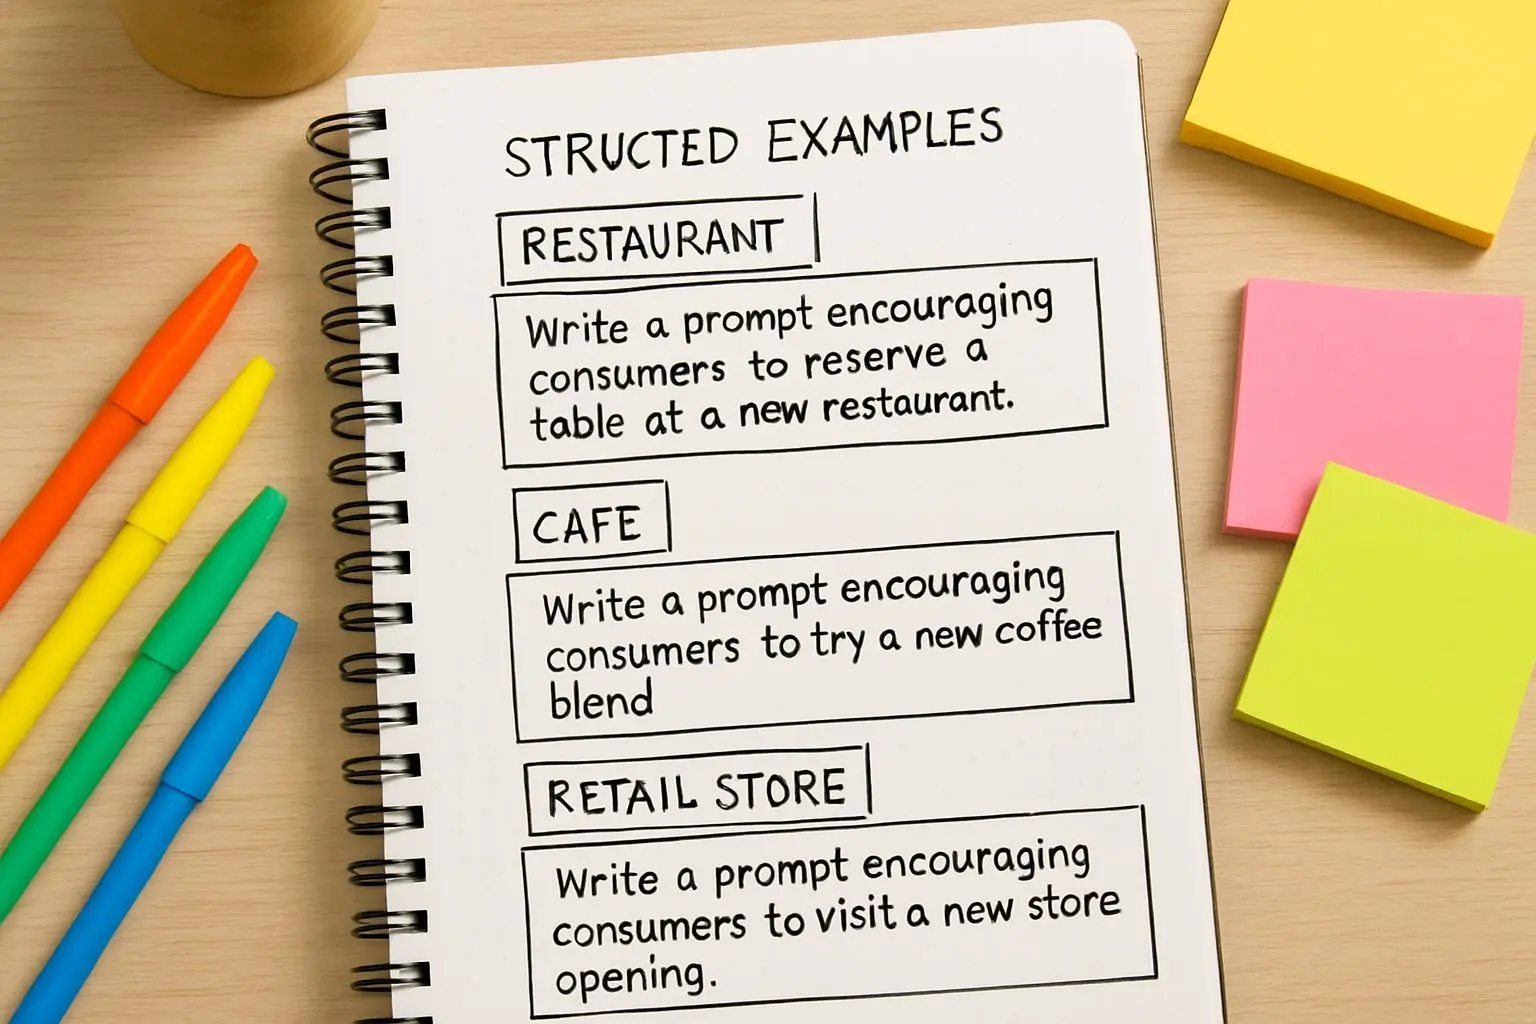 STRUCTED EXAMPLES
RESTAURANT
Write a prompt encouraging
consumers to reserve a
table at a new restaurant.
CAFE
Write a prompt encouraging
consumers to try a new coffee
blend
RETAIL STORE
Write a prompt encouraging
consumers to visit a new store
opening.